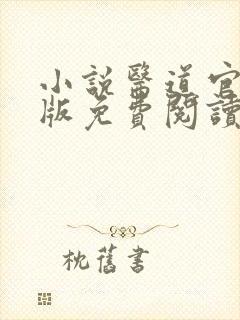 小說醫道官
版免費閱讀
枕舊書